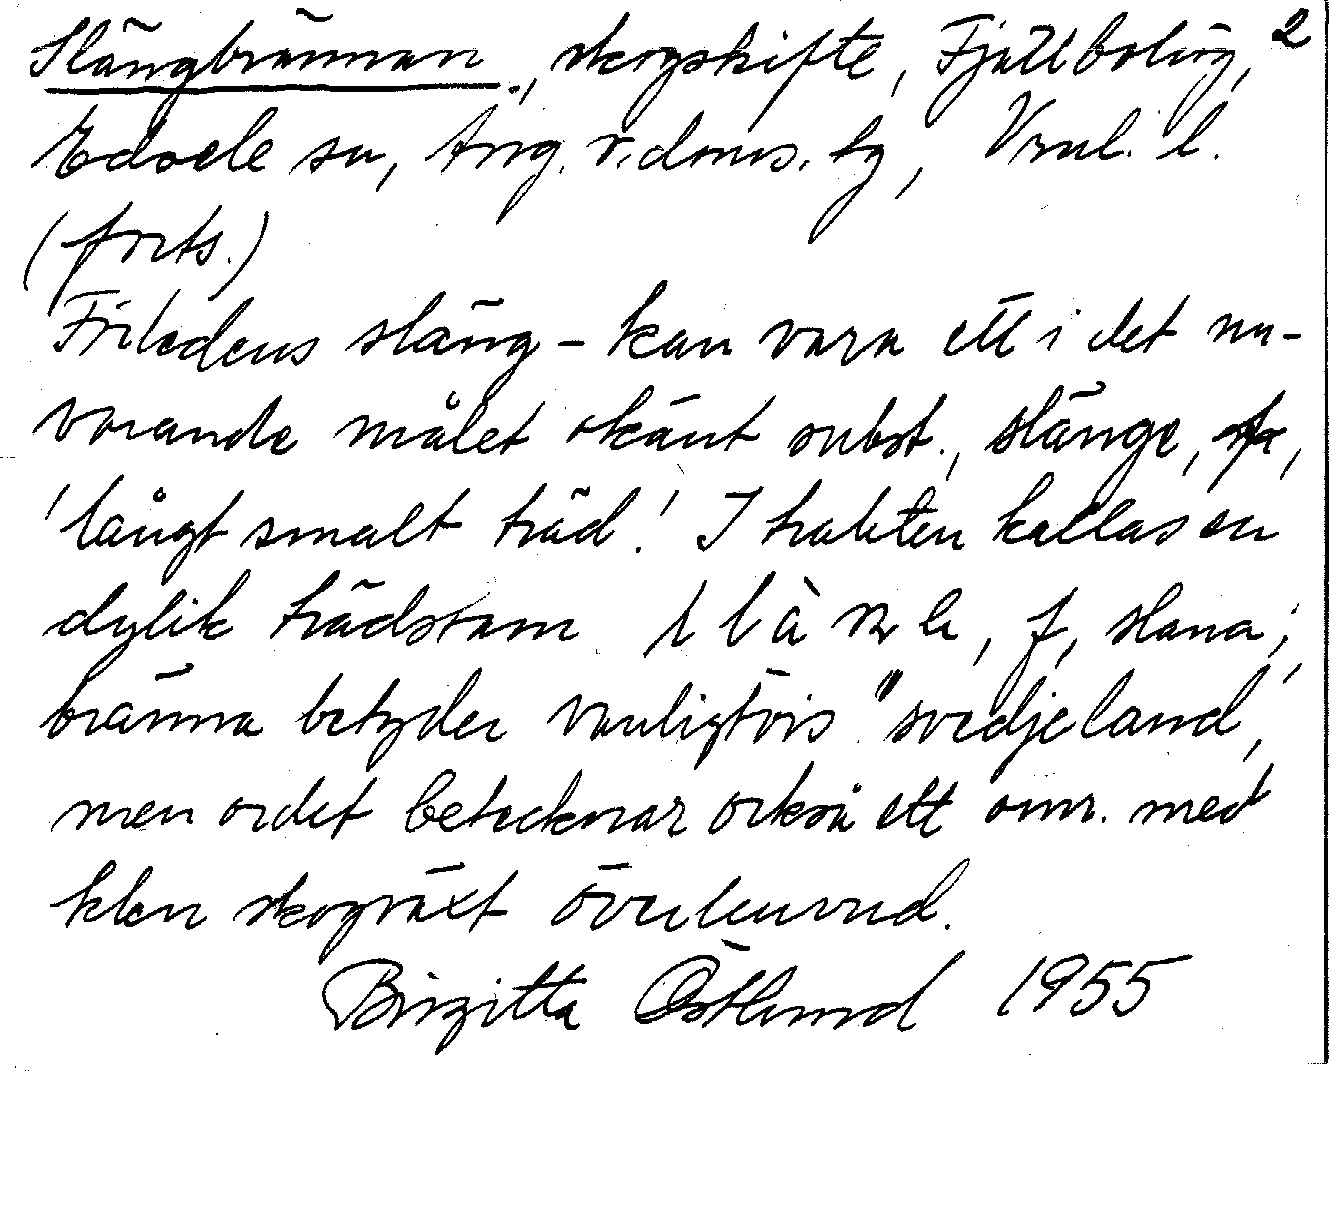 Slängbrännan, skogskifte, Fjällbolig, 2
Edsele sn, Ång. v. doms. tg, Vrnl. l.
(forts.)
Förledens släng- kan vara ett i det nu-
varande målet okänt subst., slänge,
'långt smalt träd'. I trakten kallas en
dylik trädstam f, slana;
bränna betyder vanligtvis "svedjeland,
men ordet betecknar också ett omr. med
klen skogväxt överlevnad.
Birgitta Östlund 1955